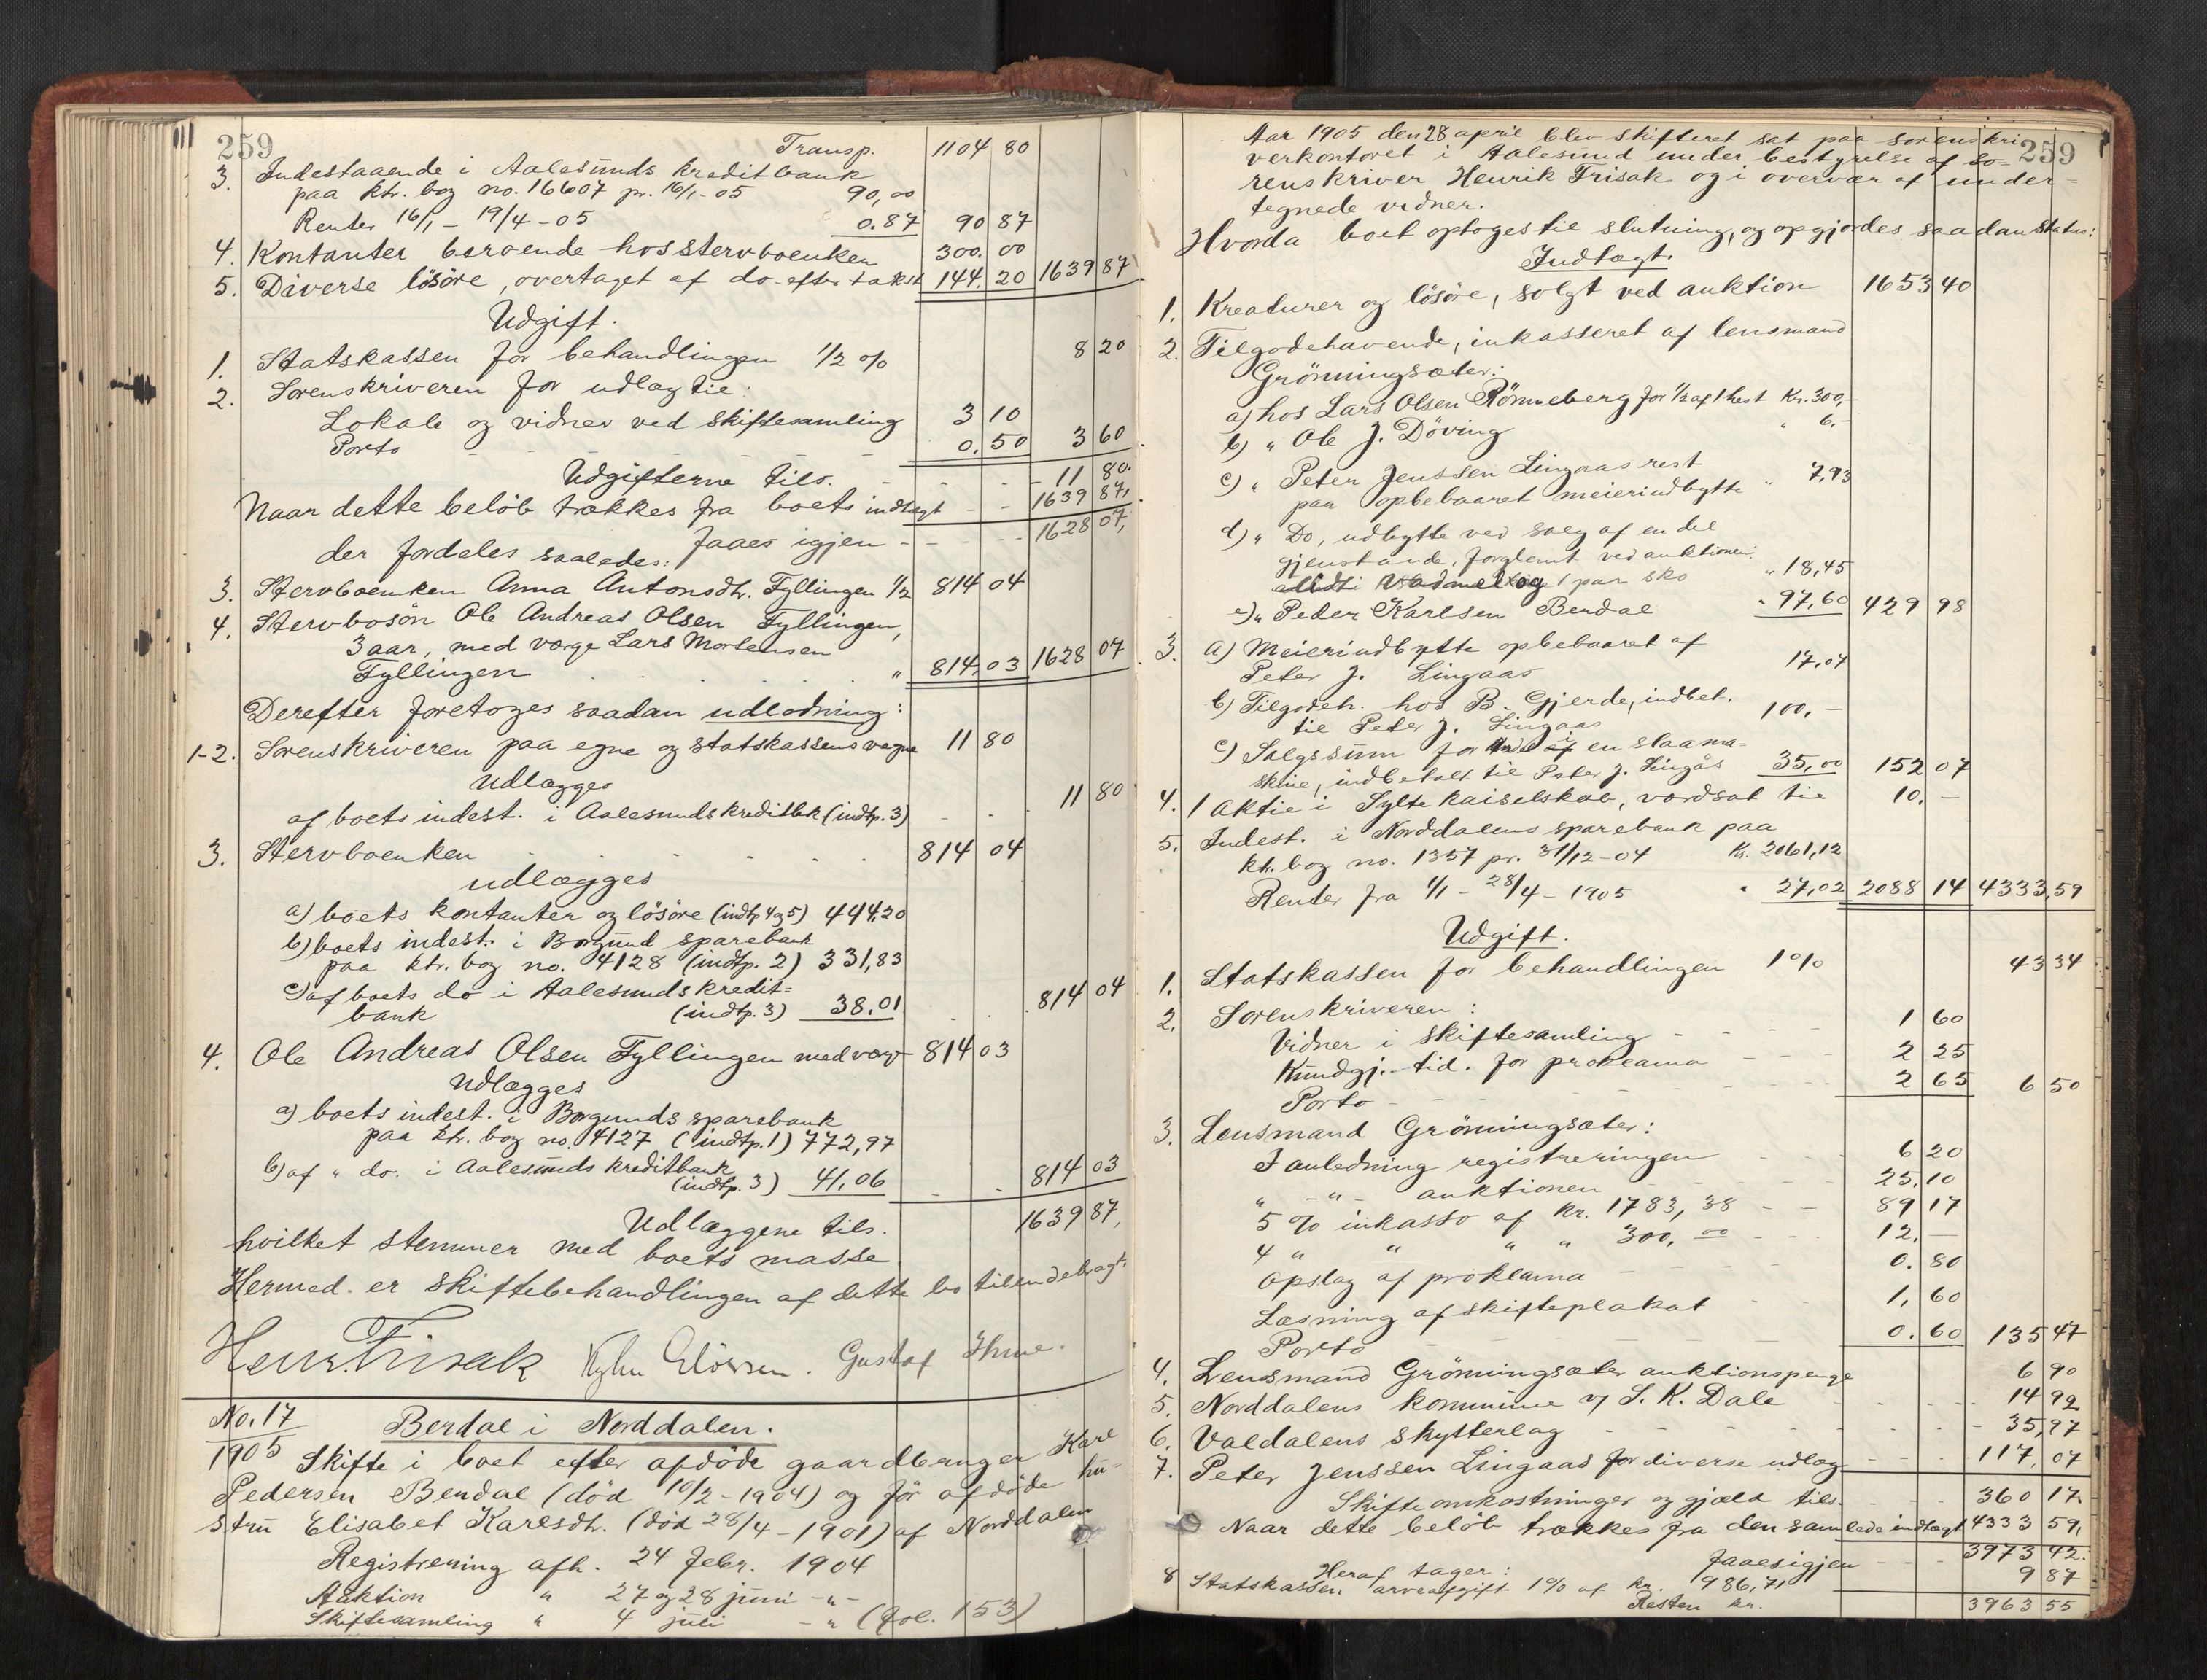 259
Transp. 1104 80
3. Indestaaende i Aalesunds kreditbank
paa ktr. bog no. 16607 pr. 16/1-05 90,00
Renter 16/1 - 19/4-05 0.87 90 87
4. Kontanter beroende hos stervboenken 300. 00
5. Diverse lösöre, overtaget af do efter takst 144. 20 1639 87
Udgift.
1. Statskassen for behandlingen 1/2 % 8 20
2. Sorenskriveren for udlæg til:
Lokale og vidner ved skiftesamling 3 10
Porto 0. 50 3 60
Udgifterne tils. 11 80.
Naar dette beløb trækkes fra boets indtægt 1639 87,
faaes igjen 1628 07,
der fordeles saaledes:
3. Stervboenken Anna Antonsdtr. Fyllingen 1/2 814 04
4. Stervbosön Ole Andreas Olsen Fyllingen,
3 aar, med værge Lars Mortensen
Fyllingen " 814. 03 1628 07
Derefter foretoges saadan udlodning:
1-2. Sorenskriveren paa egne og statskassens vegne 11 80
udlægges
af boets indest. i Aalesunds kreditbk (indtp. 3) 11 80
3. Stervboenken 814 04
udlægges
a) boets kontanter og lösöre (indtp 4 og 5) 444,20
b) boets indest. i Borgund sparebank
paa ktr. bog no. 4128 (indtp. 2) 331,83
c) af boets do i Aalesunds kredit=
bank (indtp. 3) 38.01 814 04
4. Ole Andreas Olsen Fyllingen med værge 814 03
udlægges
a) boets indest. i Borgunds sparebank
paa ktr. bog no. 4127 (indtp. 1) 772,97
b) af " do. i Aalesunds kreditbank
(indtp. 3) 41,06 814 03
Udlæggene tils. 1639 87,
hvilket stemmer med boets masse.
Hermed er skiftebehandlingen af dette bo tilendebragt.
Henr. Frisak Gustaf
No. 17
1905
Berdal i Norddalen.
Skifte i boet efter afdöde gaardbruger Karl
Pedersen Berdal (död 10/2-1904) og för afdöde hu-
stru Elisabet Karlsdtr. (död 28/4-1901) af Norddalen
Registrering afh. 24 febr. 1904
Auktion " 27 og 28 juni -"-
Skiftesamling " 4 juli -" (fol. 153)
259
Aar 1905 den 28 april blev skifteret sat paa sorenskri
verkontoret i Aalesund under bestyrelse af so=
renskriver Henrik Frisak og i overvær af under=
tegnede vidner.
Hvorda boet optoges til slutning, og opgjordes saadan status:
Indtægt.
1. Kreaturer og lösöre, solgt ved auktion 1653 40
2. Tilgodehavende, inkasseret af lensmand
Grönningsæter:
a) hos Lars Olsen Rönneberg for 1/2 af 1 hest Kr. 300,-
b) " Ole J. Döving " 6.-
c) " Peter Jenssen Lingaas rest
paa opbebaaret meieriudbytte " 7,93
d) " Do, udbytte ved salg af en del
gjenstande, forglemt ved auktionen:
vadmel og 1 par sko " 18,45
e) " Peder Karlsen Berdal " 97,60 429 98
3. a) Meieriudbytte opbebaaret af
Peter J. Lingaas 17,07
b) Tilgodeh. hos B. Gjerde, indbet.
til Peter J. Lingaas 100,-
c) Salgssum for en slaama-
skine, indbetalt til Peter J. Lingås 35,00 152 07
4. 1 aktie i Sylte kaiselskab, værdsat til 10. -
5. Indest. i Norddalens sparebank paa
kt. bog no. 1357 pr. 31/12-04 Kr. 2061,12
Renter fra 1/1 - 28/4 - 1905 " 27,02 2088 14 4333,59
Udgift.
1. Statskassen for behandlingen 1 % 43 34
2. Sorenskriveren:
Vidner i skiftesamling 1 60
Kundgj.-tid. for proklama 2 25
Porto 2 65 6 50
3. Lensmand Grönningsæter:
I anledning registreringen 6 20
" -"- auktionen 25. 10
5 % inkasso af kr. 1783,38 89 17
4 " " " " 300,00 12. -
Opslag af proklama 0. 80
Læsning af skifteplakat 1, 60
Porto 0. 60 135 47
4. Lensmand Grönningsæter auktionspenge 6 90
5. Norddalens kommune v/ S. K. Dale 14 92
6. Valdalens skytterlag 35,97
7. Peter Jenssen Lingaas for diverse udlæg 117, 07
Skifteomkostninger og gjæld tils. 360 17.
Naar dette beløb trækkes fra den samlede indtægt 4333 59,
faaes igjen 3973 42.
Heraf tager:
8 Statskassen arveafgift 1 % af kr. 986,71 9 87
Resten kr. 3963 55